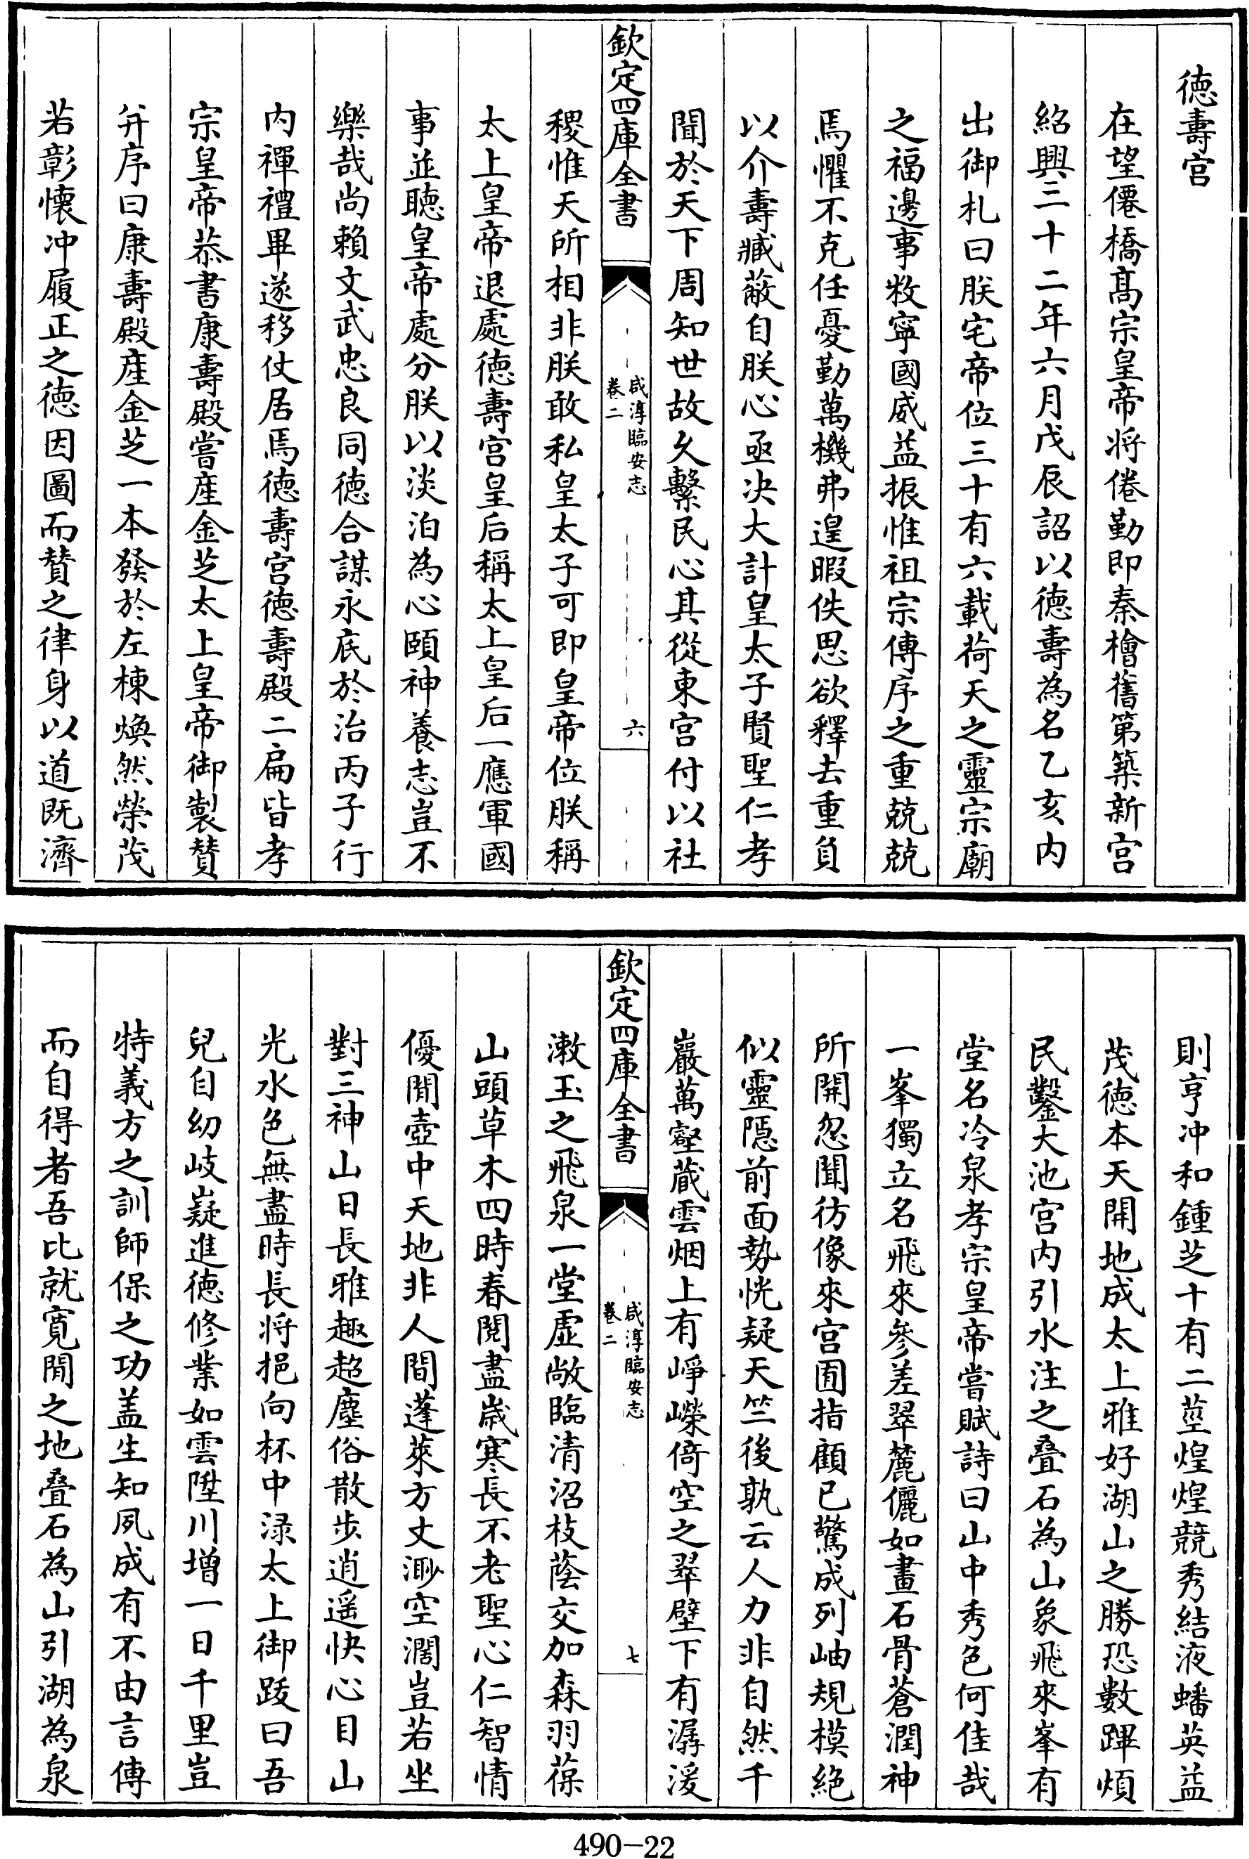 德壽宫
在望僊橋髙宗皇帝将倦勤即秦檜舊第築新宫
紹興三十二年六月戊辰詔以德壽為名乙亥内
出御札曰朕宅帝位三十有六載荷天之靈宗廟
之福邊事牧寧國威益振惟祖宗傳序之重兢兢
焉懼不克任憂勤萬機弗遑暇佚思欲釋去重負
以介壽臧蔽自朕心亟决大計皇太子賢聖仁孝
聞於天下周知世故乆繫民心其從東宫付以社
欽定四庫全書
咸淳臨安志
卷二
六
稷惟天所相非朕敢私皇太子可即皇帝位朕稱
太上皇帝退處德壽宫皇后稱太上皇后一應軍國
事並聴皇帝處分朕以淡泊為心頤神養志豈不
樂哉尚賴文武忠良同德合謀永底於治丙子行
内禪禮畢遂移仗居焉德壽宫德壽殿二扁皆孝
宗皇帝恭書康壽殿嘗産金芝太上皇帝御製賛
并序曰康壽殿産金芝一本發於左棟煥然榮茂
若彰懐冲履正之德因圖而賛之律身以道既濟
則亨冲和鍾芝十有二莖煌煌競秀結液蟠英益
茂德本天開地成太上雅好湖山之勝恐數蹕煩
民鑿大池宫内引水注之叠石為山象飛來峯有
堂名冷泉孝宗皇帝嘗賦詩曰山中秀色何佳哉
一峯獨立名飛來參差翠麓儼如畫石骨蒼潤神
所開忽聞彷像來宫囿指顧已驚成列岫規模絶
似靈隠前面勢恍疑天竺後孰云人力非自然千
巖萬壑藏雲烟上有崢嶸倚空之翠壁下有潺湲
欽定四庫全書
咸淳臨安志
卷二
七
漱玉之飛泉一堂虚敞臨清沼枝蔭交加森羽葆
山頭草木四時春閲盡嵗寒長不老聖心仁智情
優閒壺中天地非人間蓬萊方丈渺空濶豈若坐
對三神山日長雅趣超塵俗散步逍遥快心目山
光水色無盡時長将挹向杯中渌太上御跋曰吾
兒自幼岐嶷進德修業如雲陞川增一日千里豈
特義方之訓師保之功盖生知夙成有不由言傳
而自得者吾比就寛閒之地叠石為山引湖為泉
490-22